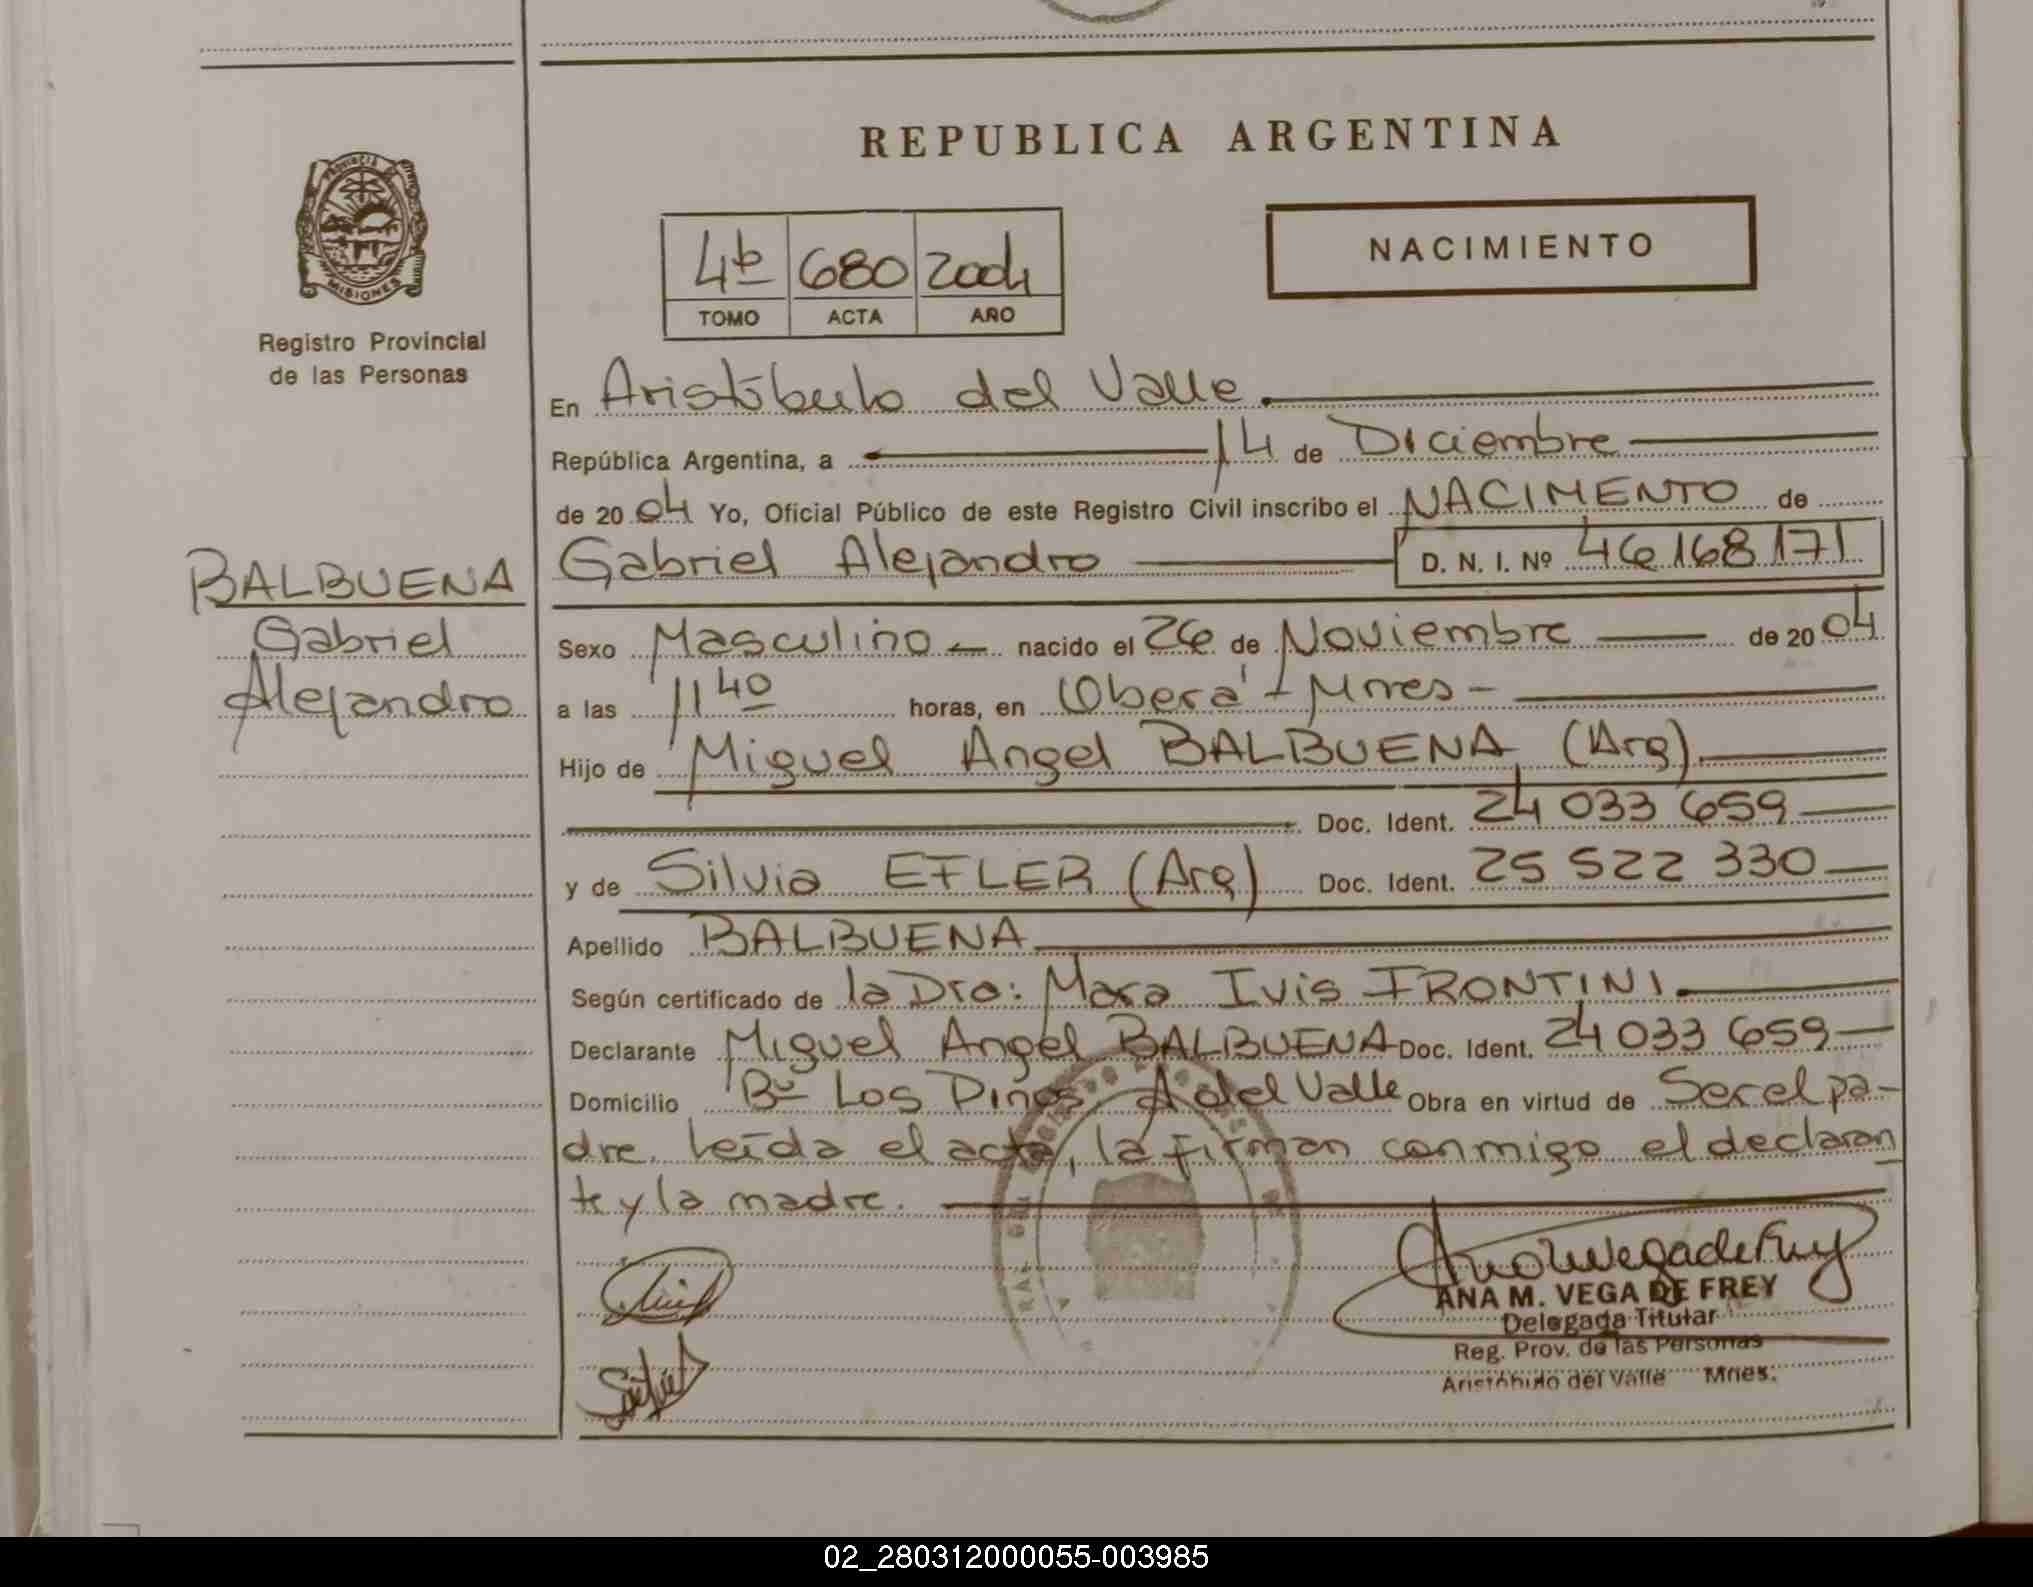 REPUBLICA ARGENTINA
PROVINCIA
MISIONES
Registro Provincial
de las Personas
4º 680 2004
TOMO ACTA AÑO
NACIMIENTO
En Aristóbulo del Valle
República Argentina, a 14 de Diciembre
de 2004 Yo, Oficial Público de este Registro Civil inscribo el NACIMIENTO de
BALBUENA
Gabriel
Alejandro
Gabriel Alejandro D. N. I. Nº 46.168.171
Sexo Masculino nacido el 26 de Noviembre de 2004
a las 11 40 horas, en Oberá - Mnes -
Hijo de Miguel Angel BALBUENA (Arg)
Doc. Ident. 24 033 659
y de Silvia EFLER (Arg) Doc. Ident. 25 522 330
Apellido BALBUENA
Según certificado de la Dra: Mara Ivis FRONTINI
Declarante Miguel Angel BALBUENA Doc. Ident. 24 033 659
Domicilio Bº Los Pinos A del Valle Obra en virtud de Ser el pa-
dre. Leída el acta, la firman conmigo el declaran
te y la madre.
ANA M. VEGA DE FREY
Delegada Titular
Reg. Prov. de las Personas
Aristóbulo del Valle Mnes.
02_280312000055-003985